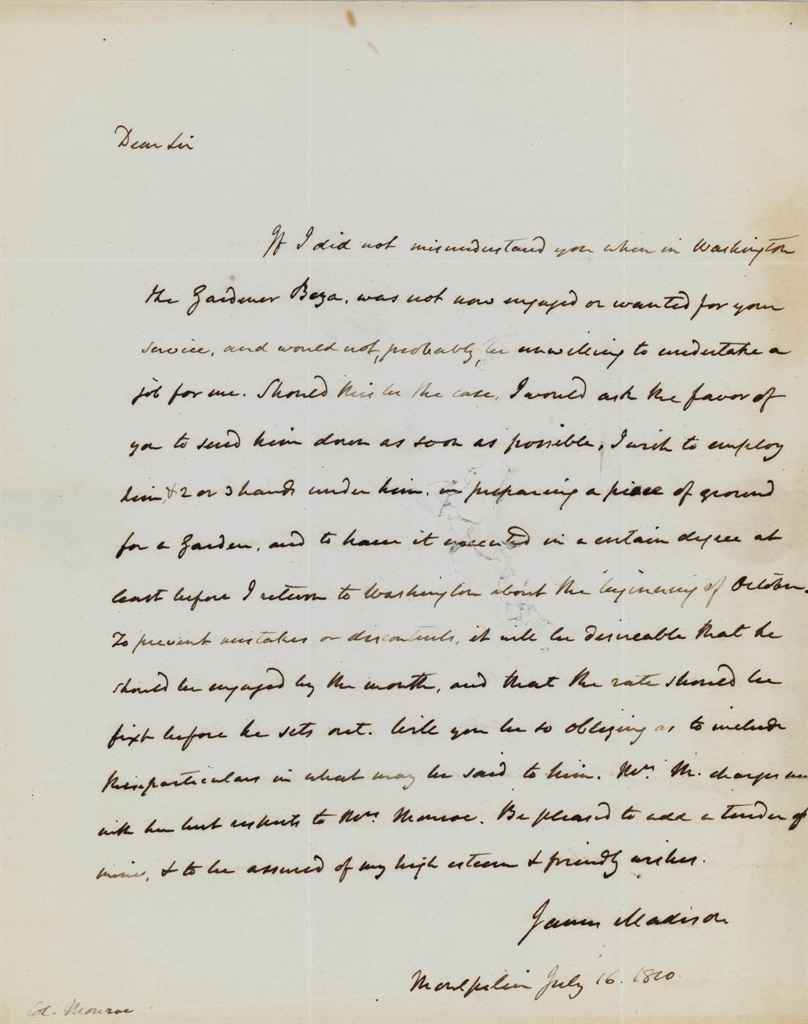 Dear Sir
If I did not misunderstand you when in Washington
the Gardener Beza, was not now engaged or wanted for your
service, and would not, probably, be unwilling to undertake a
job for me. Should this be the case, I would ask the favor of
you to send him down as soon as possible. I wish to employ
him, & 2 or 3 hands under him, in preparing a piece of ground
for a Garden, and to have it executed in a certain degree at
least before I return to Washington about the beginning of October.
To prevent mistakes or discontents, it will be desireable that he
should be engaged by the month, and that the rate should be
fixt before he sets out. Will you be so obliging as to include
these particulars in what may be said to him. Mrs. M. charges me
with her best respects to Mrs. Monroe. Be pleased to add a tender of
mine, & to be assured of my high esteem & friendly wishes.
James Madison
Montpelier July 16. 1810
Col. Monroe